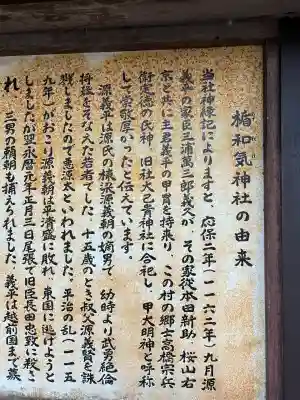 楯和気神社の由来
当社神縁記によりますと、応保二年(一一六二年)九月源
義平の家臣三浦萬三郎義久が、その家従本田新助、桜山右
京と共に主君義平の甲冑を持来り、この村の郷士高橋宗兵
衛定徳の氏神、旧社大己貴神社に合祀し、甲大明神と呼称
して崇敬厚かったと伝えています。
源義平は源氏の棟梁源義朝の嫡男で、幼時より武勇絶倫
将猛をそなえた若者でした。十五歳のとき叔父源義賢を誅
戮しましたので悪源太といわれました。平治の乱(一一五
九年)がおこり源義朝は平清盛に敗れ、東国に逃げようと
しましたが翌永暦元年正月三日尾張で旧臣長田忠致に殺さ
れ、三男の頼朝も捕えられました。義平は越前国まで墓